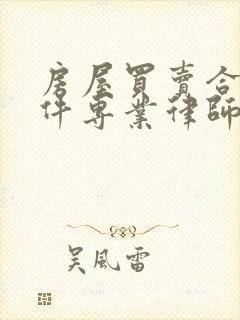 房屋買賣合
件專業律師
吳風雷